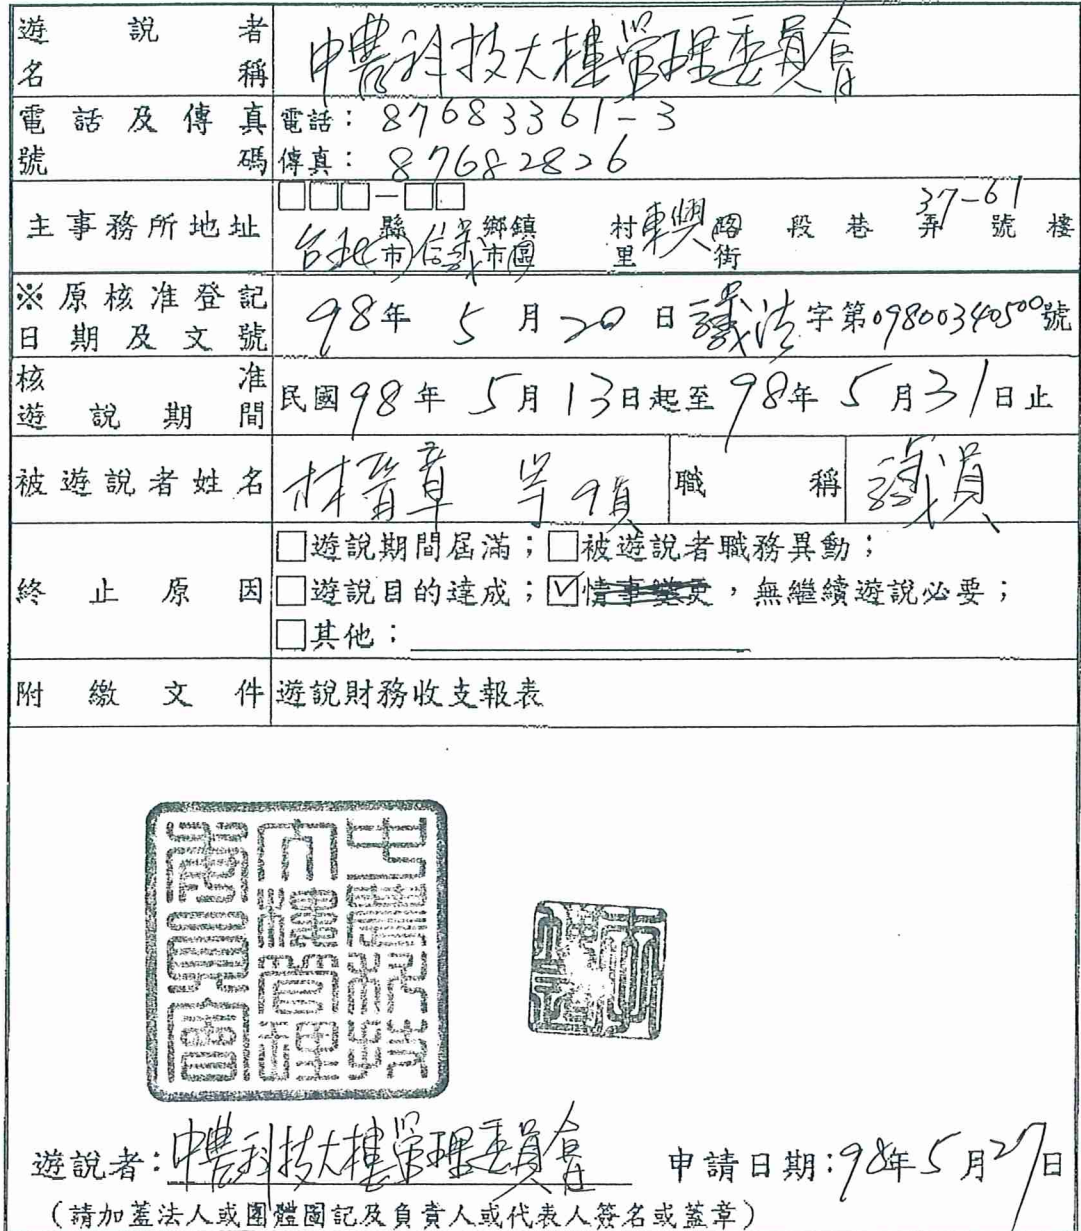 遊說者
名稱
中農科技大樓管理委員會
電話及傳真
號碼
電話：87683361-3
傳真：87682826
主事務所地址
□□□－□□
台北 縣市 信義 鄉鎮市區 村里 東興 路街 段 巷 弄 37-61 號 樓
※原核准登記
日期及文號
98年 5 月 20 日 議法 字第09800340500號
核准
遊說期間
民國98年 5月13日起至98年 5月31日止
被遊說者姓名
林晉章 等9員
職稱
議員
終止原因
□遊說期間屆滿；□被遊說者職務異動；
□遊說目的達成；☑情事變更，無繼續遊說必要；
□其他：
附繳文件
遊說財務收支報表
中農科技
大樓管理
委員會
遊說者：中農科技大樓管理委員會
申請日期：98年5月27日
（請加蓋法人或團體圖記及負責人或代表人簽名或蓋章）